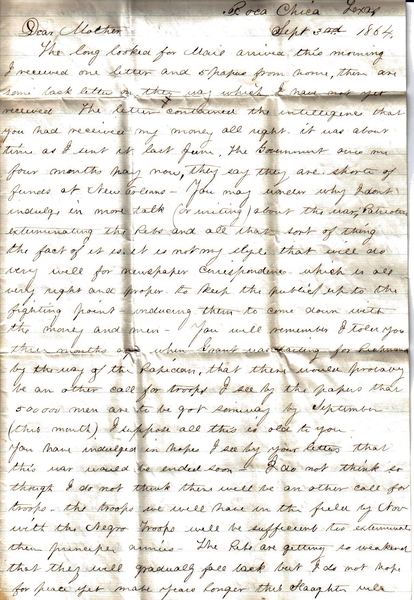 Boca Chica Texas
Dear Mother Sept 3rd 1864.
The long looked for Mail arrived this morning
I received one letter and 5 papers from home, there are
som back letter on they way which I have not yet
received The letter contained the intelligence that
you had received my money all right. it was about
time as I sent it last June. The Government owes me
four months pay now, they say they are shorte of
funds at New Orleans – You may wonder why I dont
indulge in more talk (or writing) about the war,
exterminating the Rebs and all that sort of thing
the fact of it is it is not my style that will do
very well for newspaper correspondence which is all
very right and proper to keep the public up to the
fighting point – inducing them to come down with
the money and men – You will remember I told you
three months ago when Grant was for Richmond
by the way of the Rapidan, that there would probaby
be an other call for troops I see by the papers that
500000 men are to be got someway by September
(this month) I suppose all this is old to you
You have indulged in hopes I see by your letters that
this war would be ended soon – I do not think so
though I do not think there will be an other call for
troops – the troops we will have in the field by Nov
with the Negro Troops will be sufficient to exterminate
them principle armies – The Rebs are getting so weakened
that they will gradualy fall back but I do not hope
for peace yet make years longer this Slaughter will